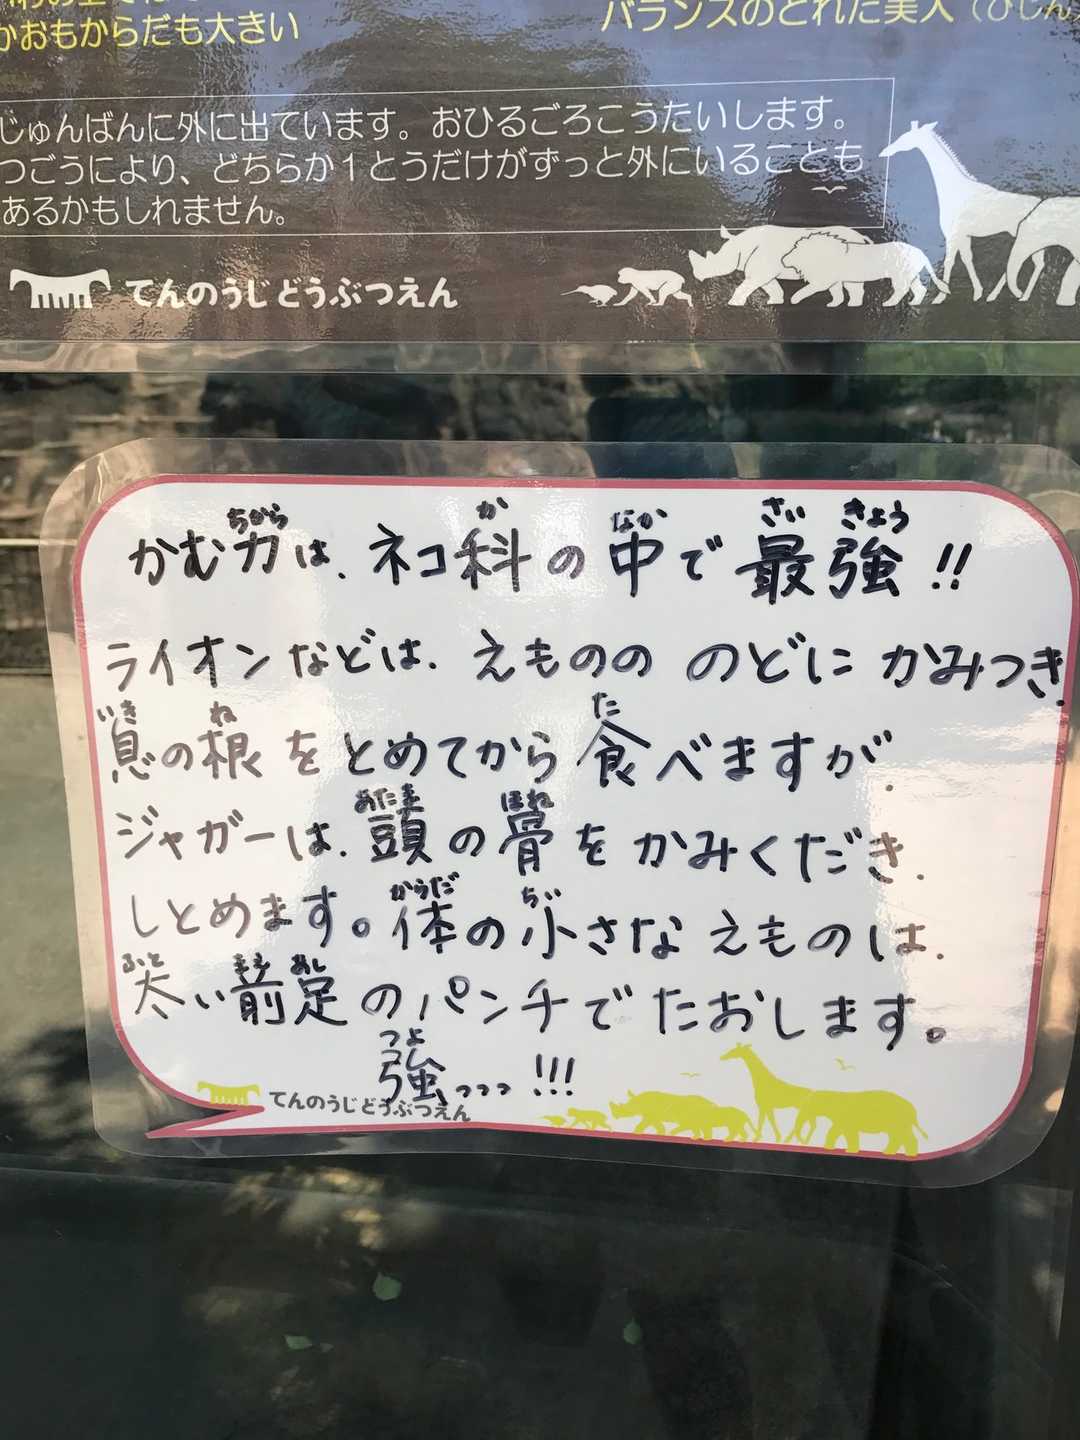 かおもからだも大きい
バランスのとれた美人（びじん
じゅんばんに外に出ています。おひるごろこうたいします。
つごうにより、どちらか1とうだけがずっと外にいることも
あるかもしれません。
てんのうじどうぶつえん
かむ力は、ネコ科の中で最強!!
ライオンなどは、えものの のどに かみつき、
息の根をとめてから食べますが、
ジャガーは、頭の骨をかみくだき、
しとめます。体の小さな えものは、
太い前足のパンチでたおします。
強っっっ!!!
てんのうじどうぶつえん